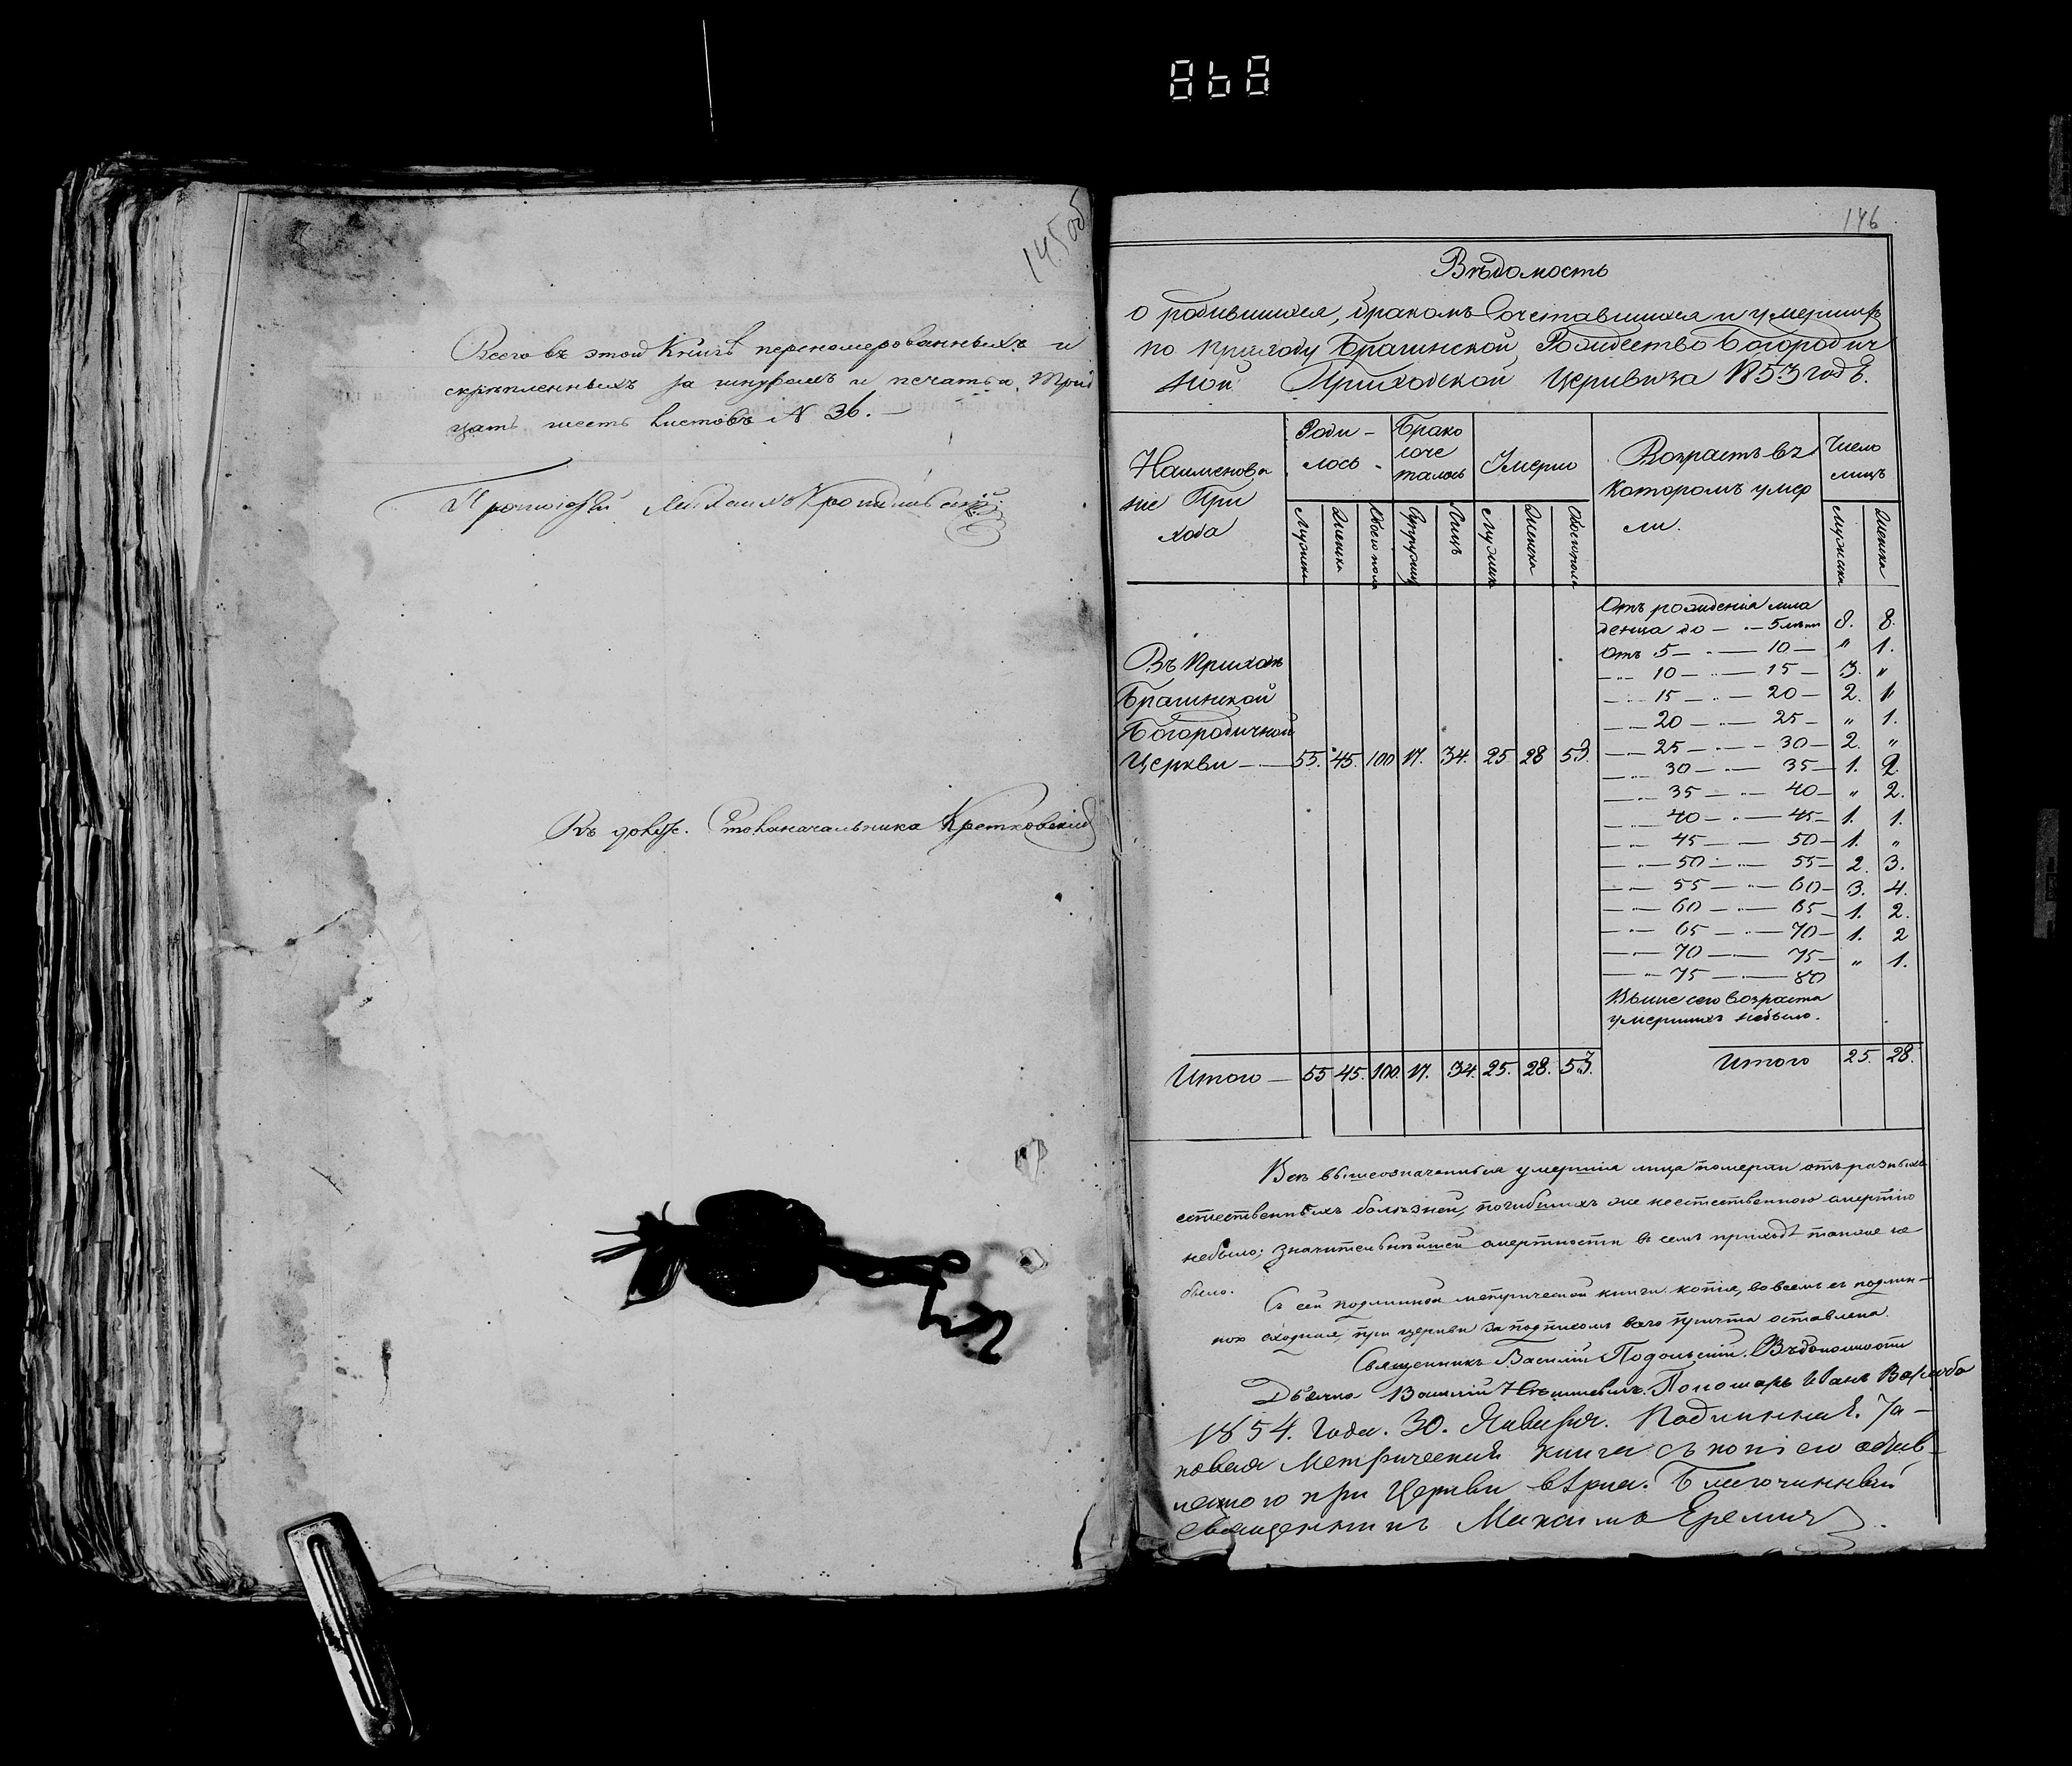 145об
Всего въ этой Книгѣ перенумерованныхъ и
скрѣпленныхъ за шнуромъ и печатью, Трид
цать шесть листовъ N 36. —
Протоіерей
Столоначальника
146
Вѣдомость
о родившихся, бракомъ Сочетавшихся и умершихъ
по приходу Брагинской Рождество Богородич
ной Приходской Церкви за 1853 годъ.
Наименова
ніе При
хода
Роди-
лось
Брако
соче
талось
Умерло
Возрастъ въ
которомъ умер
ли.
Число
лицъ
Мужеска
Женска
Обоего пола
Супружествъ
Лицъ
Мужеска
Женска
Обоего пола
Мужеска
Женска
Отъ рожденія мла
денца до — " — 5 лѣтъ 8. 8.
Отъ 5 — " — 10 — " 1.
— " — 10 — " — 15 — 3. "
— " — 15 — " — 20 — 2. 1
— " — 20 — " — 25 — " 1.
— " — 25 — " — 30 — 2. "
— " — 30 — " — 35 — 1. 2.
— " — 35 — " — 40 — " 2.
— " — 40 — " — 45 — 1. 1.
— " — 45 — " — 50 — 1. "
— " — 50 — " — 55 — 2. 3.
— " — 55 — " — 60 — 3. 4.
— " — 60 — " — 65 — 1. 2.
— " — 65 — " — 70 — 1. 2
— " — 70 — " — 75 — " 1.
— " — 75 — " — 80
Выше сего возраста
умершихъ небыло.
Въ Приходѣ
Брагинской
Богородичной
Церкви — 55. 45. 100 17. 34. 25. 28 53.
Итого — 55 45. 100. 17. 34. 25. 28. 53.
Итого 25. 28.
Всѣ вышеозначенныя умершія лица померли отъ разныхъ
естественныхъ болѣзней, погибшихъ же неестественною смертію
небыло; значительнѣйшей смертности въ семъ приходѣ также не
было.
Съ сей подлинной метрической книги копія, во всемъ съ подлин-
ною сходная, при церкви за подписомъ всего причта оставлена.
Священникъ Василій Подольскій.
Дьячко Василій Пономарь Иванъ
1854. Года. 30. Января. Подлинная. Та-
ковая Метрическая книга съ копіею остав-
ленною при Церкви вѣрна. Благочинный
Священникъ Максимъ Еремичъ.